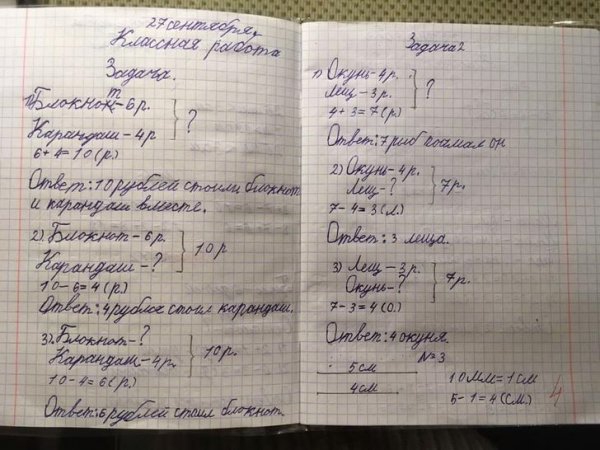 27 сентября,
Классная работа
Задача.
1) Блокнот-6р.
?
Карандаш-4р
6+4=10(р.)
Ответ: 10 рублей стоили блокнот
и карандаш вместе.
2). Блокнот-6р.
10р
Карандаш-?
10-6=4(р.)
Ответ: 4 рубля стоил карандаш.
3). Блокнот-?
10р.
Карандаш-4р.
10-4=6(р.)
Ответ: 6 рублей стоил блокнот.
Задача 2
1) Окунь-4р.
?
Лещ-3р.
4+3=7(р.)
Ответ: 7 рыб поймал он
2) Окунь-4р.
7р.
Лещ-?
7-4=3(л.)
Ответ: 3 леща.
3) Лещ-3р.
7р.
Окунь-?
7-3=4(о.)
Ответ: 4 окуня.
№3
5см
10мм=1см
4см
5-1=4(см.)
4